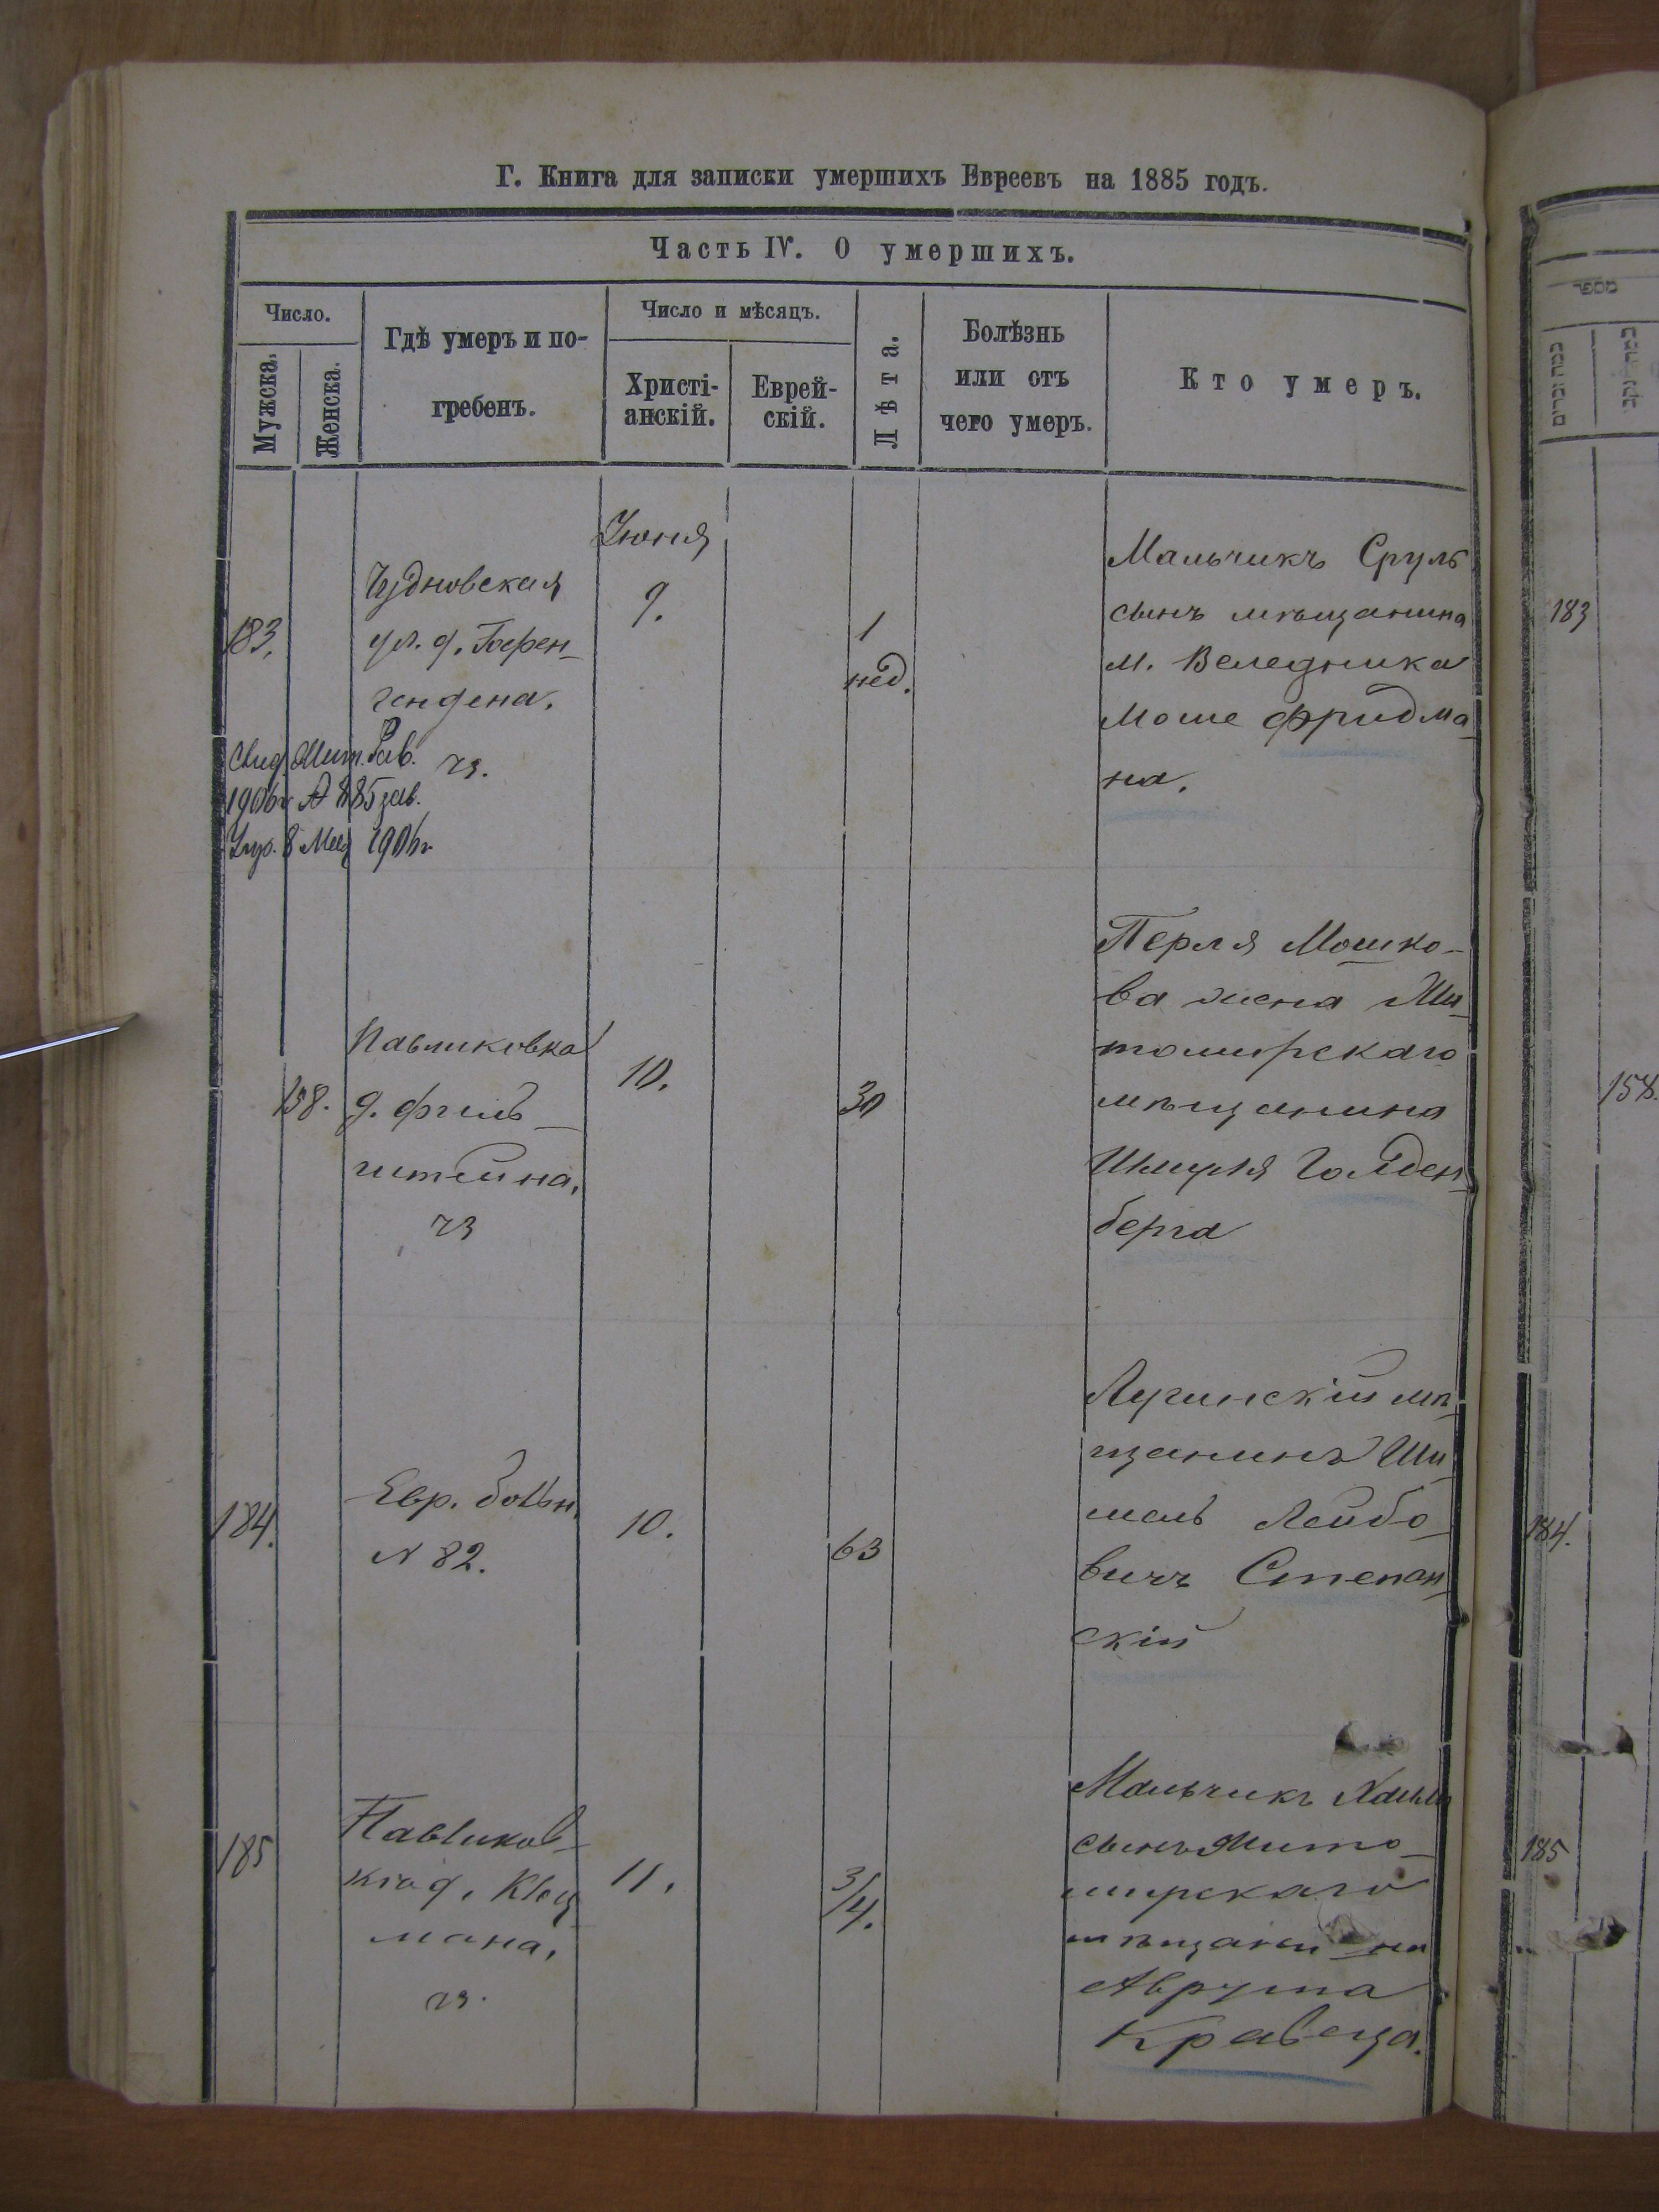 Г. Книга для записки умершихъ Евреевъ на 1885 годъ.
Часть IV. О умершихъ.
Число.
Мужска.
Женска.
Гдѣ умеръ и по-
гребенъ.
Число и мѣсяцъ.
Христі-
анскій.
Еврей-
скій.
Лѣта.
Болѣзнь
или отъ
чего умеръ.
Кто умеръ.
183.
Чудновская
ул. д.
Іюня
9.
1
нед.
Мальчикъ Сруль
сынъ мѣщанина
м. Веледника
Моше Фридма-
на.
1906г № 885
8 1906г
158.
Павликовка
д. Фгиль-
штейна.
10.
30
Перля Мошко-
ва жена Жи-
томирскаго
мѣщанина
Шмуля Голден-
берга
184.
Евр. больн.
№ 82.
10.
63
Лугинскій мѣ-
щанинъ Ши-
мель Лейбо-
вичъ Степан-
скій
185
Павликов-
ка д. Клец-
мана.
11.
3/4.
Мальчикъ Хаимъ
сынъ Жито-
мирскаго
мѣщани-на
Аврума
Кравеца.
183
158.
184.
185